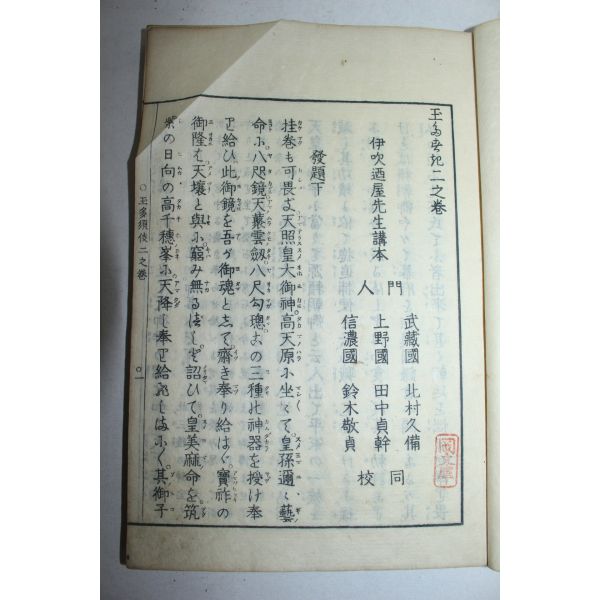 玉多須記二之卷
伊吹迺屋先生講本
門人
武藏國 北村久備
上野國 田中貞幹
信濃國 鈴木敬貞
同校
發題下
挂卷も可畏き天照皇大御神高天原に坐して皇孫邇々藝
命に八咫鏡天叢雲劔八尺勾璁この三種の神器を授け奉
り給ひ此御鏡を吾が御魂として齋き奉り給はゞ寶祚の
御隆え天壤と與に窮み無るべしと詔ひて皇美麻命を筑
紫の日向の高千穗峯に天降し奉り給ひしは
其御子
○玉多須伎二之卷
○一